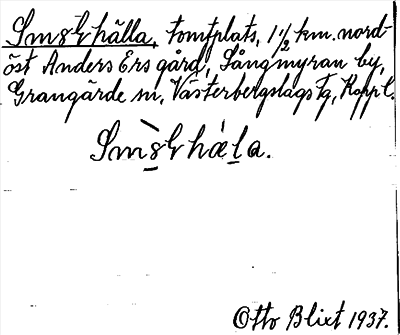 Smskhälla, tomtplats, 1 1/2 km. nord-
öst Anders Ers gård, Sångmyran by,
Grangärde sn, Västerbergslags tg, Kopp.l.
Smskhäla.
Otto Blixt 1937.